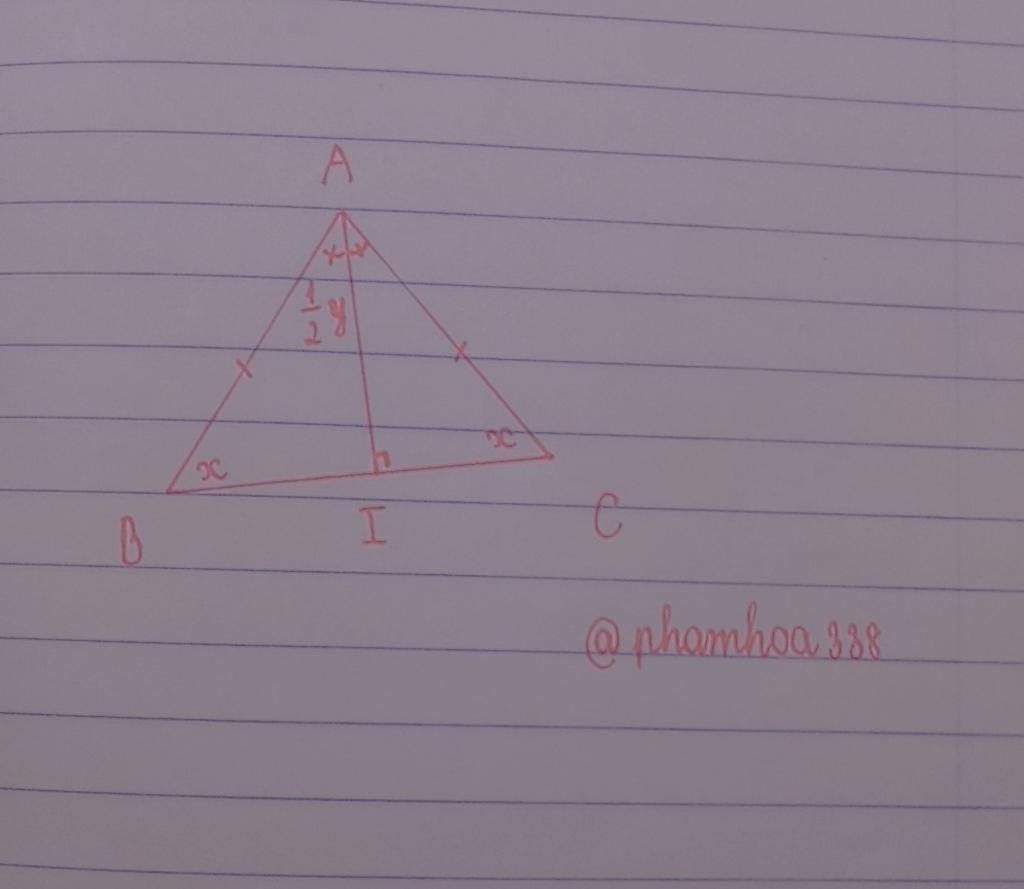 A
1/2 y
x
x
B I C
@phamhoa338